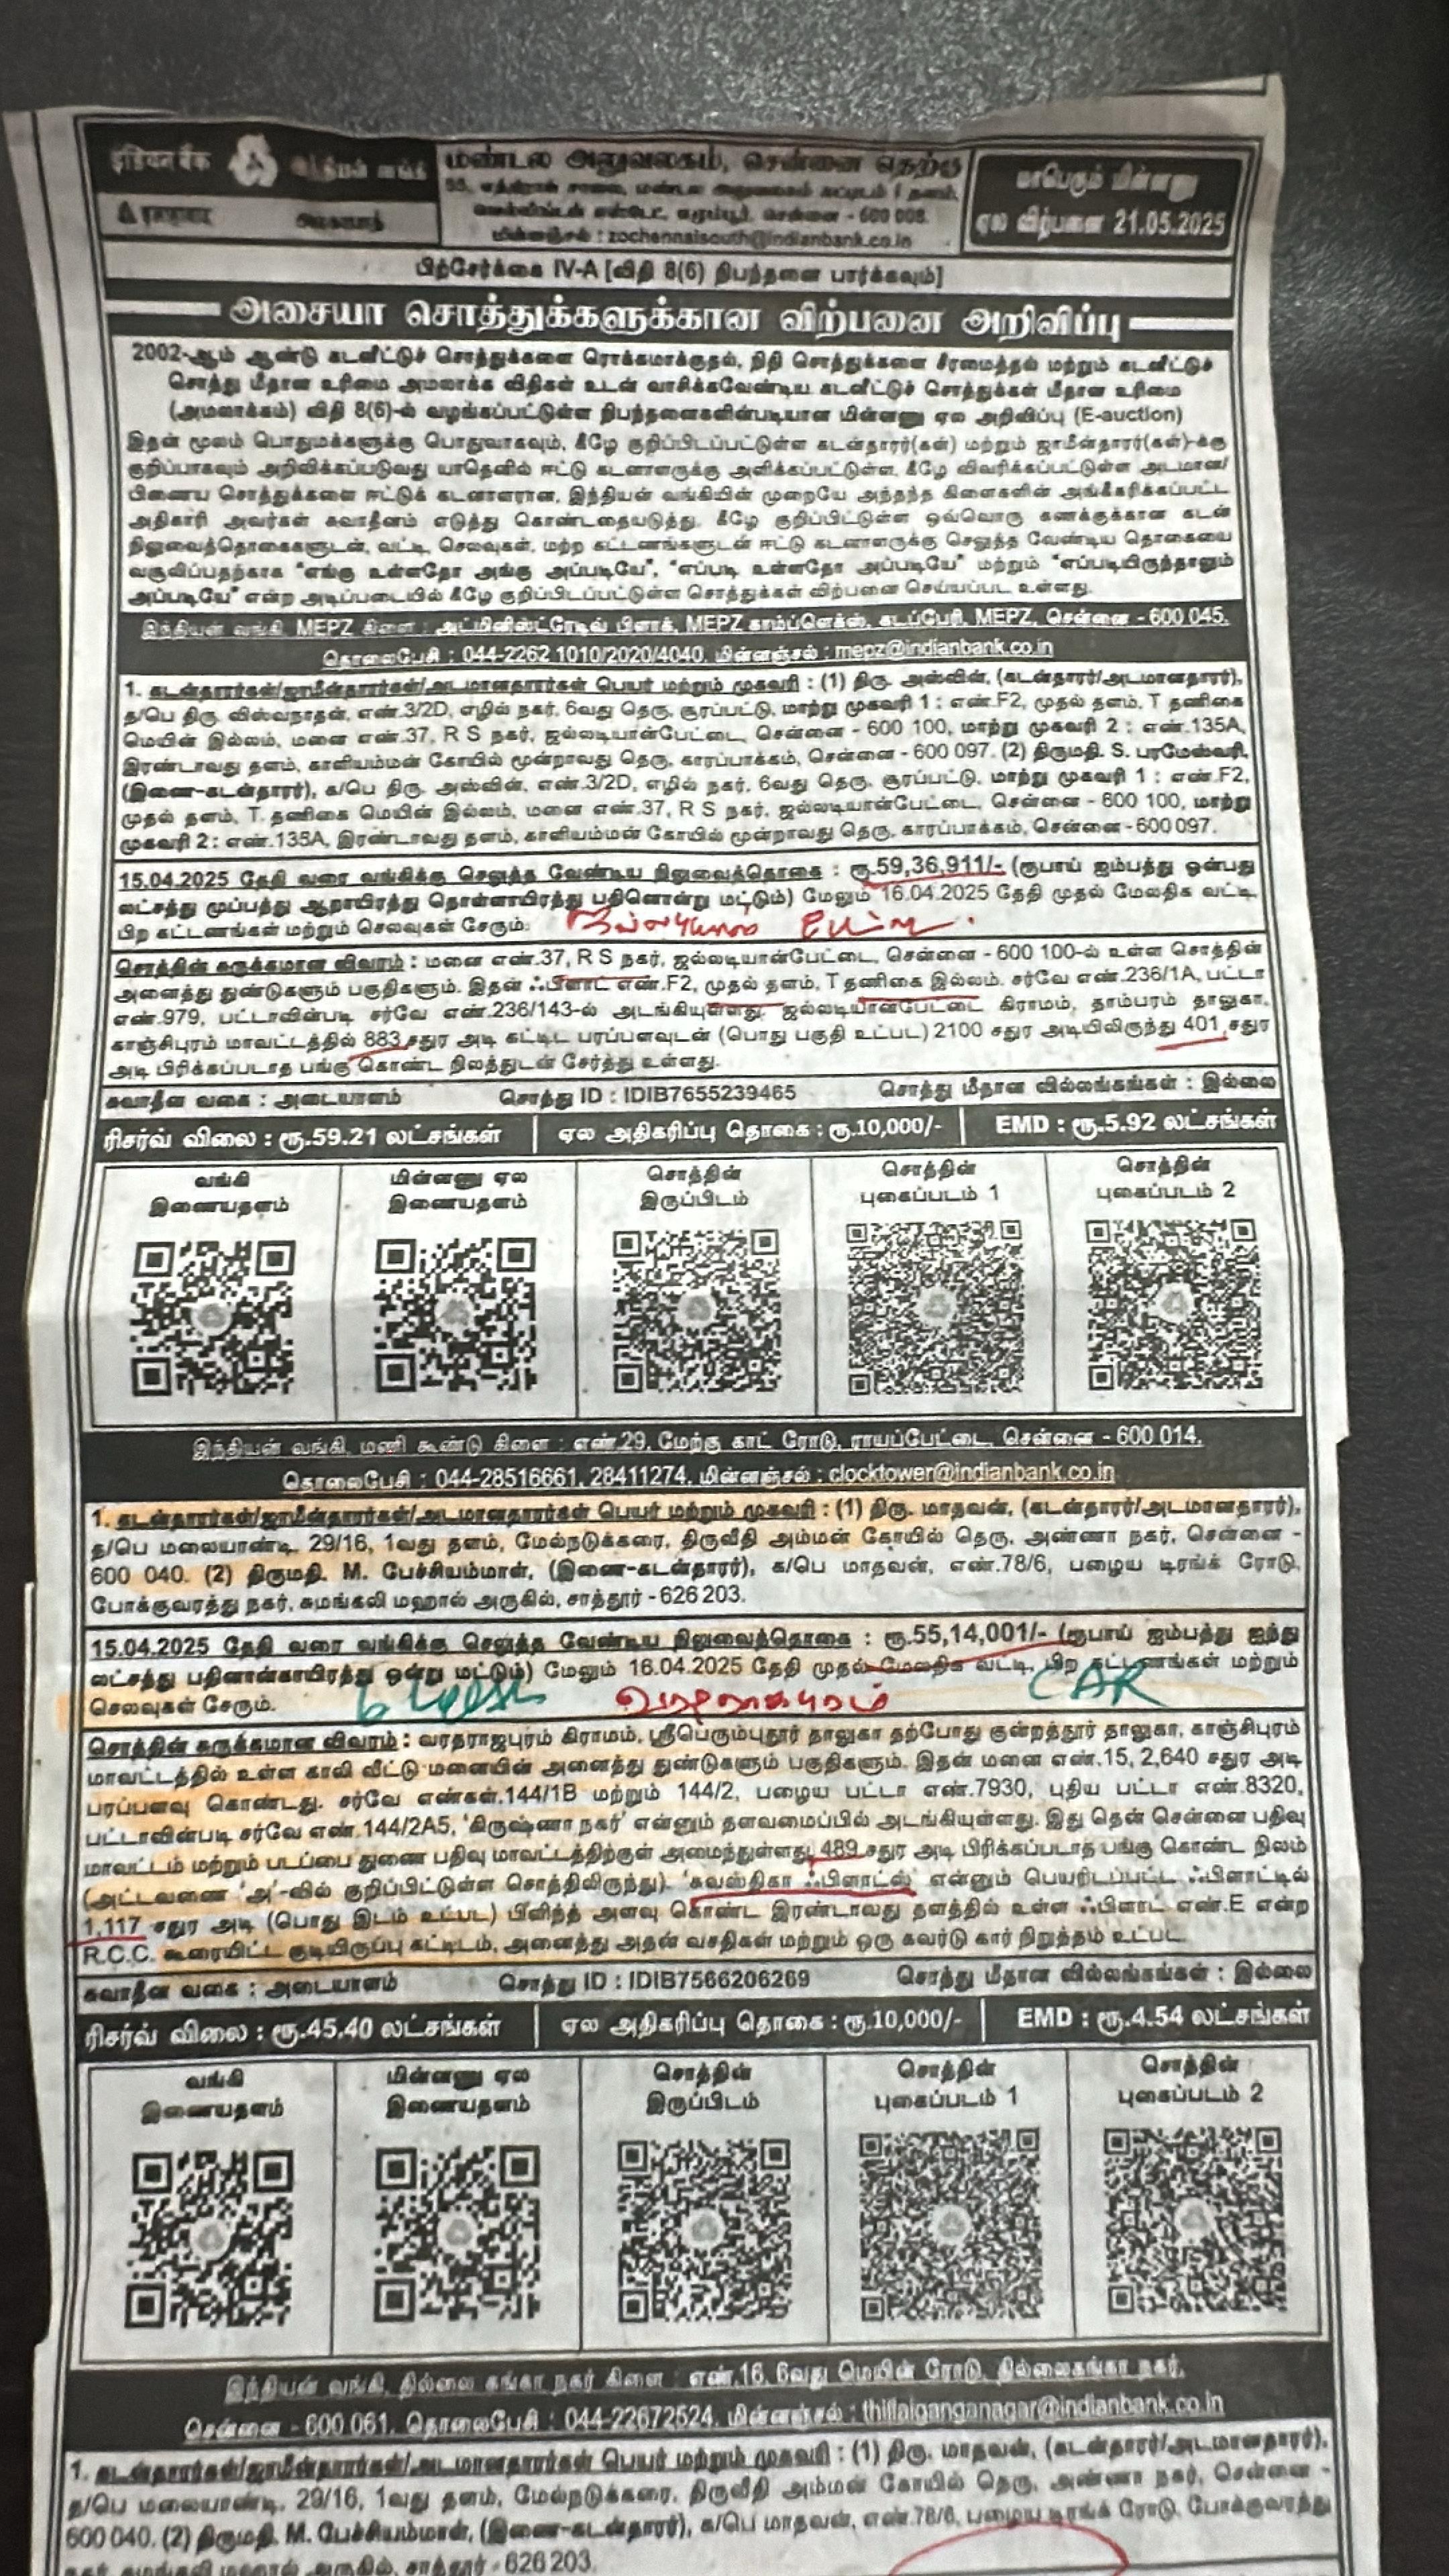 इंडियन बैंक
இந்தியன் வங்கி
மண்டல அலுவலகம், சென்னை தெற்கு
சென்னை - 600 008.
மின்னஞ்சல் : zochennaisouth@indianbank.co.in
மாபெரும் மின்னணு
ஏல விற்பனை 21.05.2025
பிற்சேர்க்கை IV-A [விதி 8(6) நிபந்தனை பார்க்கவும்]
அசையா சொத்துக்களுக்கான விற்பனை அறிவிப்பு
2002-ஆம் ஆண்டு கடனீட்டுச் சொத்துக்களை ரொக்கமாக்குதல், நிதி சொத்துக்களை சீரமைத்தல் மற்றும் கடனீட்டுச்
சொத்து மீதான உரிமை அமலாக்க விதிகள் உடன் வாசிக்கவேண்டிய கடனீட்டுச் சொத்துக்கள் மீதான உரிமை
(அமலாக்கம்) விதி 8(6)-ல் வழங்கப்பட்டுள்ள நிபந்தனைகளின்படியான மின்னணு ஏல அறிவிப்பு (E-auction)
இதன் மூலம் பொதுமக்களுக்கு பொதுவாகவும், கீழே குறிப்பிடப்பட்டுள்ள கடன்தாரர்(கள்) மற்றும் ஜாமீன்தாரர்(கள்)-க்கு
குறிப்பாகவும் அறிவிக்கப்படுவது யாதெனில் ஈட்டு கடனாளருக்கு அளிக்கப்பட்டுள்ள, கீழே விவரிக்கப்பட்டுள்ள அடமான/
பிணைய சொத்துக்களை ஈட்டுக் கடனாளரான, இந்தியன் வங்கியின் முறையே அந்தந்த கிளைகளின் அங்கீகரிக்கப்பட்ட
அதிகாரி அவர்கள் சுவாதீனம் எடுத்து கொண்டதையடுத்து, கீழே குறிப்பிட்டுள்ள ஒவ்வொரு கணக்குக்கான கடன்
நிலுவைத்தொகைகளுடன், வட்டி, செலவுகள், மற்ற கட்டணங்களுடன் ஈட்டு கடனாளருக்கு செலுத்த வேண்டிய தொகையை
வசூலிப்பதற்காக "எங்கு உள்ளதோ அங்கு அப்படியே", "எப்படி உள்ளதோ அப்படியே" மற்றும் "எப்படியிருந்தாலும்
அப்படியே" என்ற அடிப்படையில் கீழே குறிப்பிடப்பட்டுள்ள சொத்துக்கள் விற்பனை செய்யப்பட உள்ளது.
இந்தியன் வங்கி, MEPZ கிளை : அட்மினிஸ்ட்ரேடிவ் பிளாக், MEPZ காம்ப்ளெக்ஸ், கடப்பேரி, MEPZ, சென்னை - 600 045.
தொலைபேசி : 044-2262 1010/2020/4040, மின்னஞ்சல் : mepz@indianbank.co.in
1. கடன்தாரர்கள்/ஜாமீன்தாரர்கள்/அடமானதாரர்கள் பெயர் மற்றும் முகவரி : (1) திரு. அஸ்வின், (கடன்தாரர்/அடமானதாரர்),
த/பெ திரு. விஸ்வநாதன், எண்.3/2D, எழில் நகர், 6வது தெரு, சூரப்பட்டு, மாற்று முகவரி 1 : எண்.F2, முதல் தளம், T தணிகை
மெயின் இல்லம், மனை எண்.37, R S நகர், ஜல்லடியான்பேட்டை, சென்னை - 600 100, மாற்று முகவரி 2 : எண்.135A,
இரண்டாவது தளம், காளியம்மன் கோயில் மூன்றாவது தெரு, காரப்பாக்கம், சென்னை - 600 097. (2) திருமதி. S. பரமேஸ்வரி,
(இணை-கடன்தாரர்), க/பெ திரு. அஸ்வின், எண்.3/2D, எழில் நகர், 6வது தெரு, சூரப்பட்டு, மாற்று முகவரி 1 : எண்.F2,
முதல் தளம், T. தணிகை மெயின் இல்லம், மனை எண்.37, R S நகர், ஜல்லடியான்பேட்டை, சென்னை - 600 100, மாற்று
முகவரி 2 : எண்.135A, இரண்டாவது தளம், காளியம்மன் கோயில் மூன்றாவது தெரு, காரப்பாக்கம், சென்னை - 600 097.
15.04.2025 தேதி வரை வங்கிக்கு செலுத்த வேண்டிய நிலுவைத்தொகை : ரூ.59,36,911/- (ரூபாய் ஐம்பத்து ஒன்பது
லட்சத்து முப்பத்து ஆறாயிரத்து தொள்ளாயிரத்து பதினொன்று மட்டும்) மேலும் 16.04.2025 தேதி முதல் மேலதிக வட்டி,
பிற கட்டணங்கள் மற்றும் செலவுகள் சேரும்.
சொத்தின் சுருக்கமான விவரம் : மனை எண்.37, R S நகர், ஜல்லடியான்பேட்டை, சென்னை - 600 100-ல் உள்ள சொத்தின்
அனைத்து துண்டுகளும் பகுதிகளும். இதன் ஃபிளாட் எண்.F2, முதல் தளம், T தணிகை இல்லம். சர்வே எண்.236/1A, பட்டா
எண்.979, பட்டாவின்படி சர்வே எண்.236/143-ல் அடங்கியுள்ளது. ஜல்லடியான்பேட்டை கிராமம், தாம்பரம் தாலுகா,
காஞ்சிபுரம் மாவட்டத்தில் 883 சதுர அடி கட்டிட பரப்பளவுடன் (பொது பகுதி உட்பட) 2100 சதுர அடியிலிருந்து 401 சதுர
அடி பிரிக்கப்படாத பங்கு கொண்ட நிலத்துடன் சேர்த்து உள்ளது.
சுவாதீன வகை : அடையாளம் சொத்து ID : IDIB7655239465 சொத்து மீதான வில்லங்கங்கள் : இல்லை
ரிசர்வ் விலை : ரூ.59.21 லட்சங்கள் ஏல அதிகரிப்பு தொகை : ரூ.10,000/- EMD : ரூ.5.92 லட்சங்கள்
வங்கி இணையதளம்
மின்னணு ஏல இணையதளம்
சொத்தின் இருப்பிடம்
சொத்தின் புகைப்படம் 1
சொத்தின் புகைப்படம் 2
இந்தியன் வங்கி, மணி கூண்டு கிளை : எண்.29, மேற்கு காட் ரோடு, ராயப்பேட்டை, சென்னை - 600 014.
தொலைபேசி : 044-28516661, 28411274, மின்னஞ்சல் : clocktower@indianbank.co.in
1. கடன்தாரர்கள்/ஜாமீன்தாரர்கள்/அடமானதாரர்கள் பெயர் மற்றும் முகவரி : (1) திரு. மாதவன், (கடன்தாரர்/அடமானதாரர்),
த/பெ மலையாண்டி, 29/16, 1வது தளம், மேல்நடுக்கரை, திருவீதி அம்மன் கோயில் தெரு, அண்ணா நகர், சென்னை -
600 040. (2) திருமதி. M. பேச்சியம்மாள், (இணை-கடன்தாரர்), க/பெ மாதவன், எண்.78/6, பழைய டிரங்க் ரோடு,
போக்குவரத்து நகர், சுமங்கலி மஹால் அருகில், சாத்தூர் - 626 203.
15.04.2025 தேதி வரை வங்கிக்கு செலுத்த வேண்டிய நிலுவைத்தொகை : ரூ.55,14,001/- (ரூபாய் ஐம்பத்து ஐந்து
லட்சத்து பதினான்காயிரத்து ஒன்று மட்டும்) மேலும் 16.04.2025 தேதி முதல் மேலதிக வட்டி, பிற கட்டணங்கள் மற்றும்
செலவுகள் சேரும். வரதராஜபுரம் CAR
சொத்தின் சுருக்கமான விவரம் : வரதராஜபுரம் கிராமம், ஸ்ரீபெரும்புதூர் தாலுகா தற்போது குன்றத்தூர் தாலுகா, காஞ்சிபுரம்
மாவட்டத்தில் உள்ள காலி வீட்டு மனையின் அனைத்து துண்டுகளும் பகுதிகளும். இதன் மனை எண்.15, 2,640 சதுர அடி
பரப்பளவு கொண்டது. சர்வே எண்கள்.144/1B மற்றும் 144/2, பழைய பட்டா எண்.7930, புதிய பட்டா எண்.8320,
பட்டாவின்படி சர்வே எண்.144/2A5, 'கிருஷ்ணா நகர்' என்னும் தளவமைப்பில் அடங்கியுள்ளது. இது தென் சென்னை பதிவு
மாவட்டம் மற்றும் படப்பை துணை பதிவு மாவட்டத்திற்குள் அமைந்துள்ளது. 489 சதுர அடி பிரிக்கப்படாத பங்கு கொண்ட நிலம்
(அட்டவணை 'அ'-வில் குறிப்பிட்டுள்ள சொத்திலிருந்து). 'சுவஸ்திகா ஃபிளாட்ஸ்' என்னும் பெயரிடப்பட்ட ஃபிளாட்டில்
1,117 சதுர அடி (பொது இடம் உட்பட) பிளிந்த் அளவு கொண்ட இரண்டாவது தளத்தில் உள்ள ஃபிளாட் எண்.E என்ற
R.C.C. கூரையிட்ட குடியிருப்பு கட்டிடம், அனைத்து அதன் வசதிகள் மற்றும் ஒரு கவர்டு கார் நிறுத்தம் உட்பட.
சுவாதீன வகை : அடையாளம் சொத்து ID : IDIB7566206269 சொத்து மீதான வில்லங்கங்கள் : இல்லை
ரிசர்வ் விலை : ரூ.45.40 லட்சங்கள் ஏல அதிகரிப்பு தொகை : ரூ.10,000/- EMD : ரூ.4.54 லட்சங்கள்
வங்கி இணையதளம்
மின்னணு ஏல இணையதளம்
சொத்தின் இருப்பிடம்
சொத்தின் புகைப்படம் 1
சொத்தின் புகைப்படம் 2
இந்தியன் வங்கி, தில்லை கங்கா நகர் கிளை : எண்.16, 6வது மெயின் ரோடு, தில்லைகங்கா நகர்,
சென்னை - 600 061, தொலைபேசி : 044-22672524, மின்னஞ்சல் : thillaiganganagar@indianbank.co.in
1. கடன்தாரர்கள்/ஜாமீன்தாரர்கள்/அடமானதாரர்கள் பெயர் மற்றும் முகவரி : (1) திரு. மாதவன், (கடன்தாரர்/அடமானதாரர்),
த/பெ மலையாண்டி, 29/16, 1வது தளம், மேல்நடுக்கரை, திருவீதி அம்மன் கோயில் தெரு, அண்ணா நகர், சென்னை -
600 040. (2) திருமதி. M. பேச்சியம்மாள், (இணை-கடன்தாரர்), க/பெ மாதவன், எண்.78/6, பழைய டிரங்க் ரோடு, போக்குவரத்து
நகர், சுமங்கலி மஹால் அருகில், சாத்தூர் - 626 203.